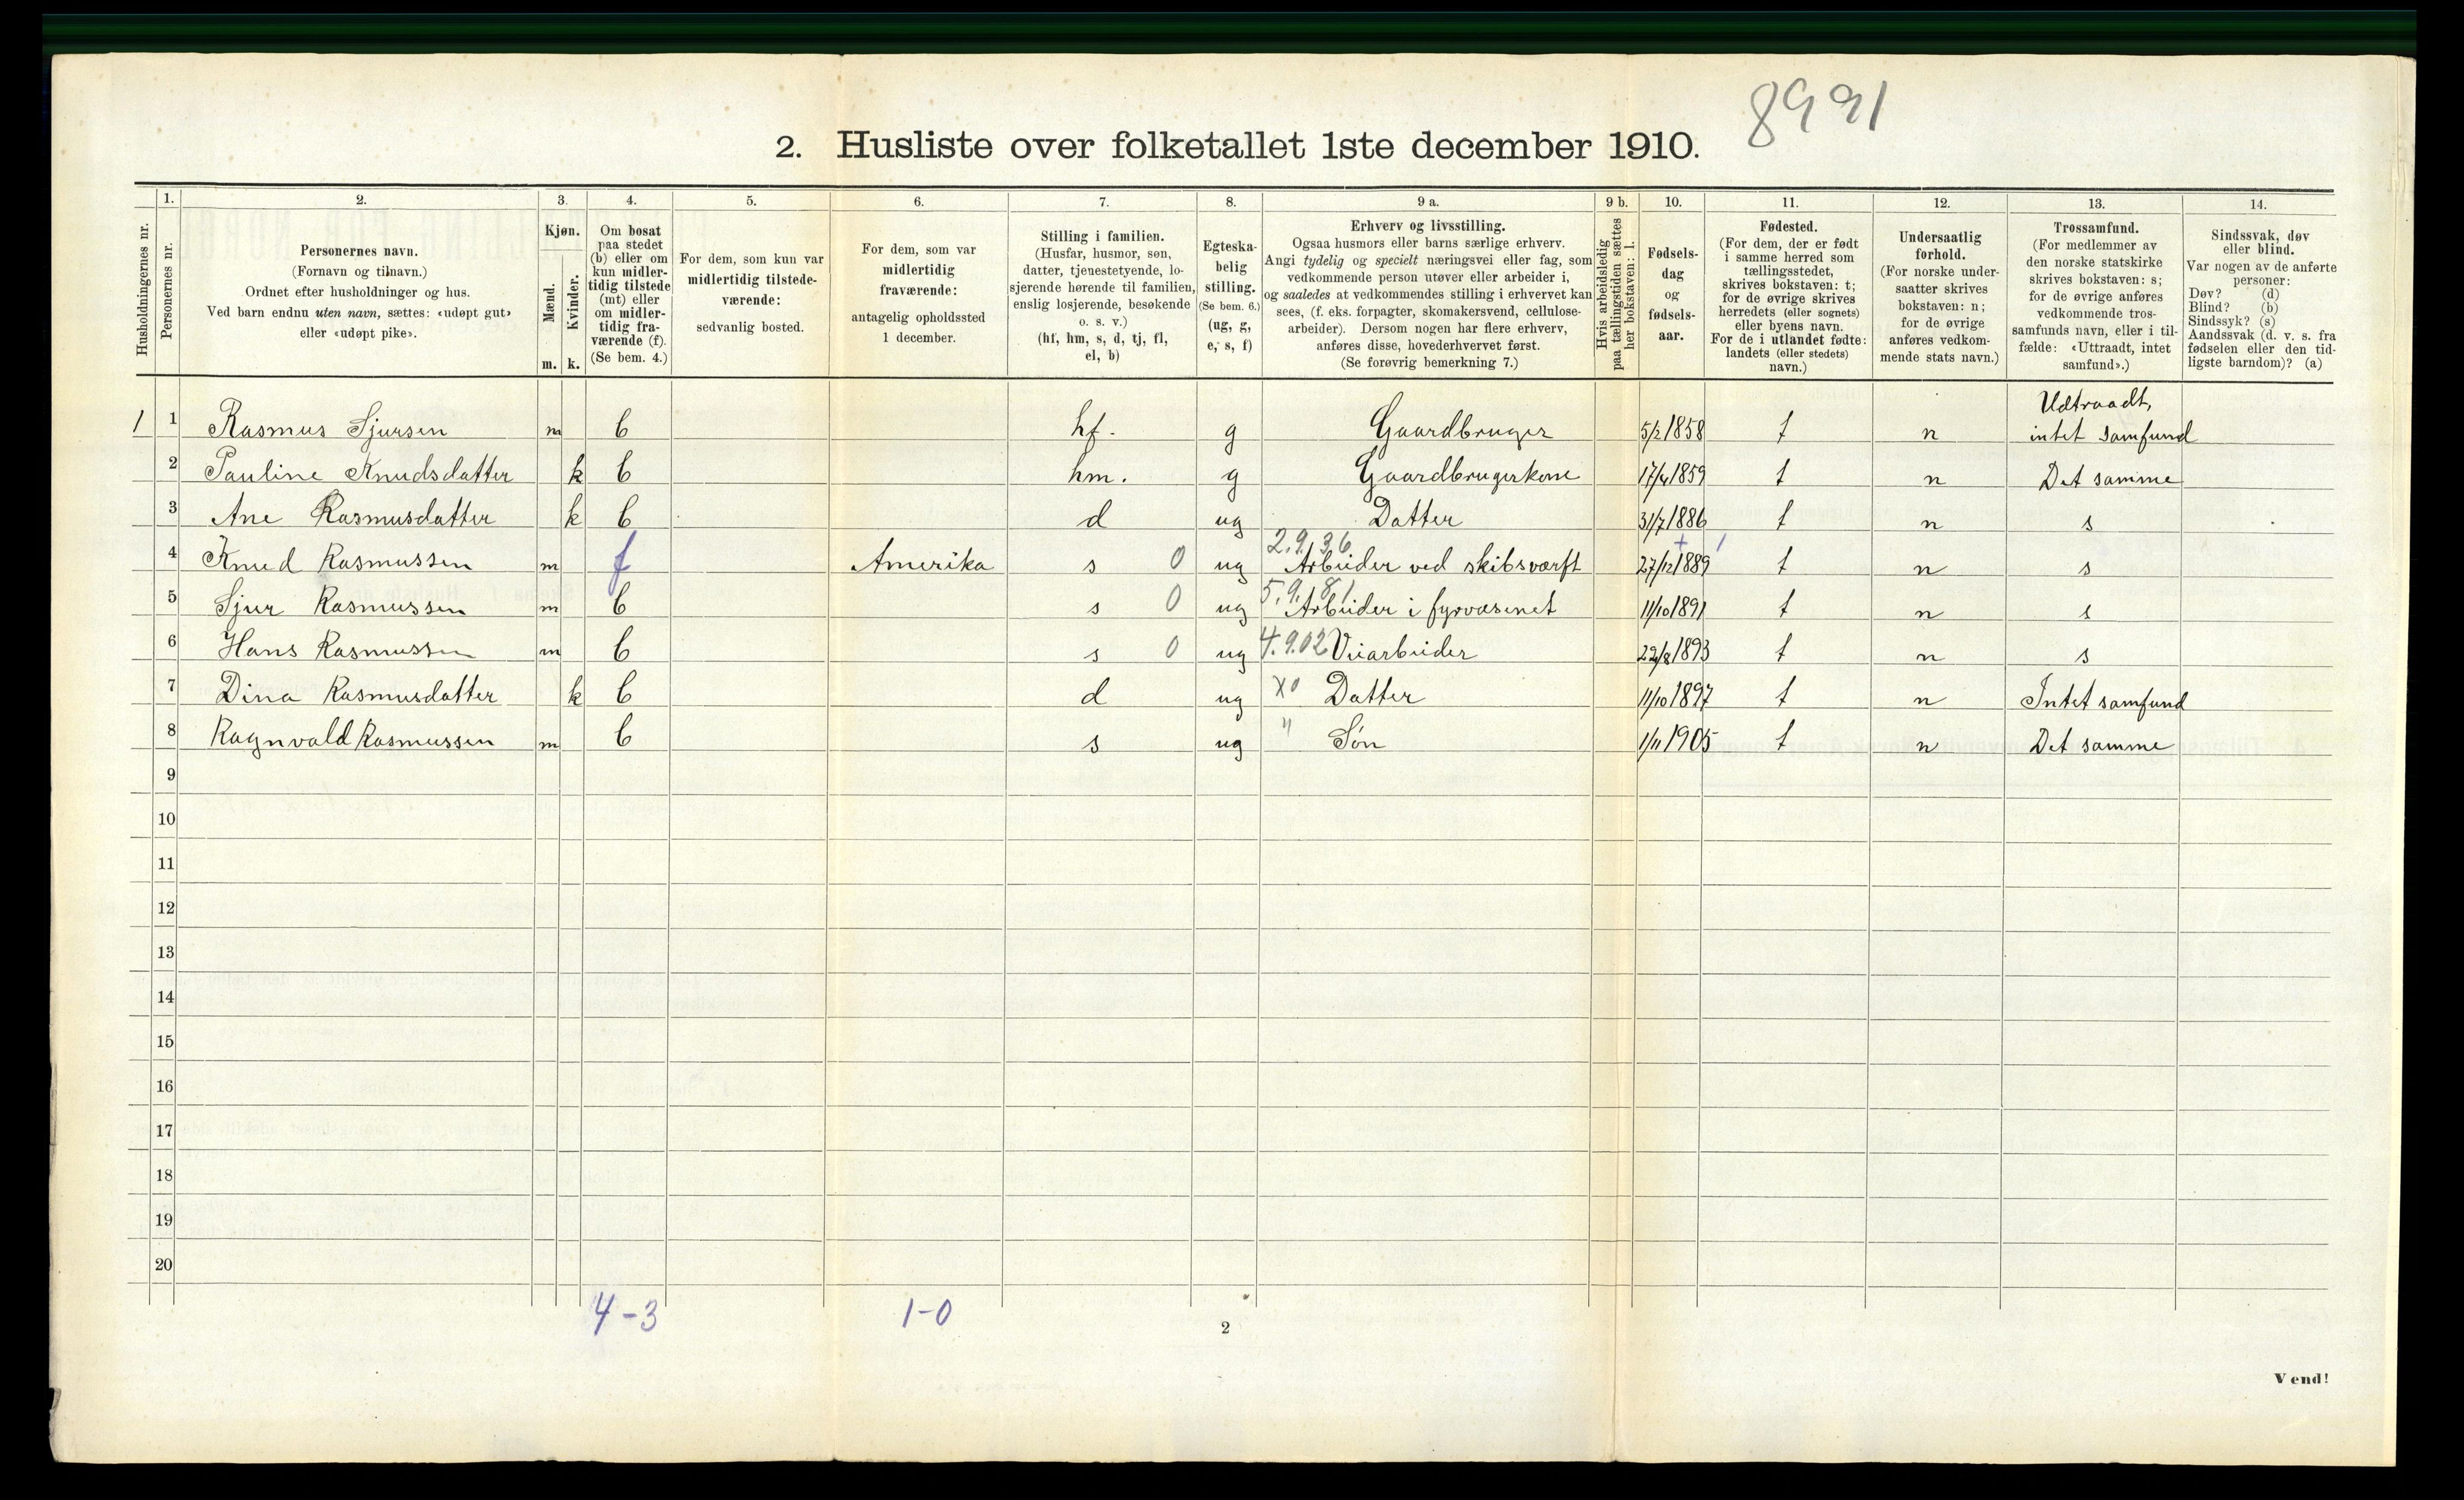 8991
2. Husliste over folketallet 1ste december 1910.
1. 2. 3. 4. 5. 6. 7. 8. 9 a. 9 b. 10. 11. 12. 13. 14.
Husholdningernes nr.
Personernes nr.
Personernes navn.
(Fornavn og tilnavn.)
Ordnet efter husholdninger og hus.
Ved barn endnu uten navn, sættes: «udøpt gut»
eller «udøpt pike».
Kjøn.
Mænd.
Kvinder.
m. k.
Om bosat
paa stedet
(b) eller om
kun midler-
tidig tilstede
(mt) eller
om midler-
tidig fra-
værende (f).
(Se bem. 4.)
For dem, som kun var
midlertidig tilstede-
værende:
sedvanlig bosted.
For dem, som var
midlertidig
fraværende:
antagelig opholdssted
1 december.
Stilling i familien.
(Husfar, husmor, søn,
datter, tjenestetyende, lo-
sjerende hørende til familien,
enslig losjerende, besøkende
o. s. v.)
(hf, hm, s, d, tj, fl,
el, b)
Egteska-
belig
stilling.
(Se bem. 6.)
(ug, g,
e, s, f)
Erhverv og livsstilling.
Ogsaa husmors eller barns særlige erhverv.
Angi tydelig og specielt næringsvei eller fag, som
vedkommende person utøver eller arbeider i,
og saaledes at vedkommendes stilling i erhvervet kan
sees, (f. eks. forpagter, skomakersvend, cellulose-
arbeider). Dersom nogen har flere erhverv,
anføres disse, hovederhvervet først.
(Se forøvrig bemerkning 7.)
Hvis arbeidsledig
paa tællingstiden sættes
her bokstaven: l.
Fødsels-
dag
og
fødsels-
aar.
Fødested.
(For dem, der er født
i samme herred som
tællingsstedet,
skrives bokstaven: t;
for de øvrige skrives
herredets (eller sognets)
eller byens navn.
For de i utlandet fødte:
landets (eller stedets)
navn.)
Undersaatlig
forhold.
(For norske under-
saatter skrives
bokstaven: n;
for de øvrige
anføres vedkom-
mende stats navn.)
Trossamfund.
(For medlemmer av
den norske statskirke
skrives bokstaven: s;
for de øvrige anføres
vedkommende tros-
samfunds navn, eller i til-
fælde: «Uttraadt, intet
samfund».)
Sindssvak, døv
eller blind.
Var nogen av de anførte
personer:
Døv? (d)
Blind? (b)
Sindssyk? (s)
Aandssvak (d. v. s. fra
fødselen eller den tid-
ligste barndom)? (a)
Udtraadt,
1 1 Rasmus Sjursen m b hf. g Gaardbruger 5/2 1858 t n intet samfund
2 Pauline Knudsdatter k b hm. g Gaardbrugerkone 17/4 1859 t n Det samme
3 Ane Rasmusdatter k b d ug Datter 31/7 1886 t n s
2.9.36
4 Knud Rasmussen m f Amerika s 0 ug Arbeider ved skibsværft 27/12 1889 t n s
5.9.81
5 Sjur Rasmussen m b s 0 ug Arbeider i fyrvæsenet 11/10 1891 t n s
6 Hans Rasmussen m b s 0 ug 4.9.02 Veiarbeider 22/8 1893 t n s
7 Dina Rasmusdatter k b d ug X0 Datter 11/10 1897 t n Intet samfund
8 Ragnvald Rasmussen m b s ug " Søn 1/11 1905 t n Det samme
9
10
11
12
13
14
15
16
17
18
19
20
4-3 1-0
2
Vend!